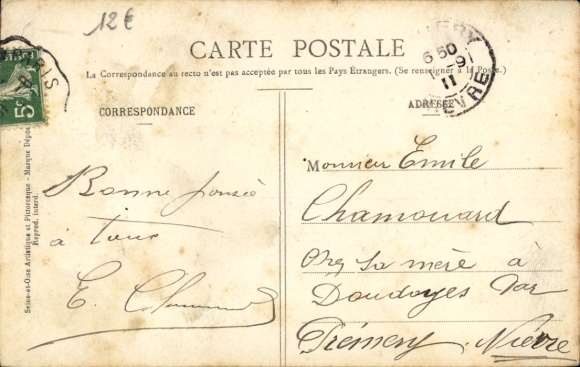 12€
CARTE POSTALE
La Correspondance au recto n'est pas acceptée par tous les Pays Étrangers. (Se renseigner à la Poste.)
CORRESPONDANCE
ADRESSE
PARIS
5c
6 50
-9
11
NIÈVRE
Seine-et-Oise Artistique et Pittoresque - Marque Dépos
Reprod. interd.
Bonne
à tous
E.
Monsieur Emile
Chamouard
chez sa mère à
par
Prémery. Nièvre